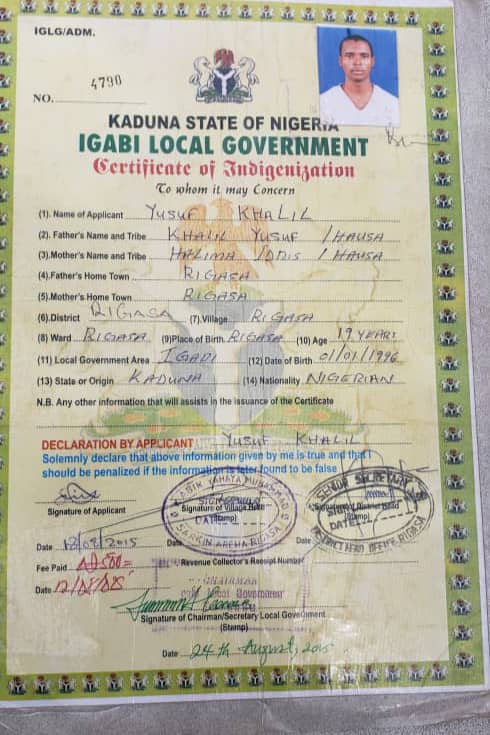 IGLG/ADM.
NO. 4790
KADUNA STATE OF NIGERIA
IGABI LOCAL GOVERNMENT
Certificate of Indigenization
To whom it may Concern
(1). Name of Applicant YUSUF KHALIL
(2). Father's Name and Tribe KHALIL YUSUF / HAUSA
(3).Mother's Name and Tribe HALIMA IDRIS / HAUSA
(4).Father's Home Town RIGASA
(5).Mother's Home Town RIGASA
(6).District RIGASA (7).Village RIGASA
(8) Ward RIGASA (9)Place of Birth RIGASA (10) Age 19 YEARS
(11) Local Government Area IGABI (12) Date of Birth 01/01/1996
(13) State or Origin KADUNA (14) Nationality NIGERIAN
N.B. Any other information that will assists in the issuance of the Certificate
DECLARATION BY APPLICANT YUSUF KHALIL
Solemnly declare that above information given by me is true and that I
should be penalized if the information is later found to be false
Signature of Applicant
Signature of Village Head
(Stamp)
SARKIN AREWA RIGASA
SENIOR SECRETARY
Signature of District Head
(Stamp)
DISTRICT HEAD OFFICE RIGASA
Date 12/08/2015 Date Date
Fee Paid Revenue Collector's Receipt Number
Date 12/08/015
CHAIRMAN
Local Government
Signature of Chairman/Secretary Local Government
(Stamp)
Date 24th August, 2015